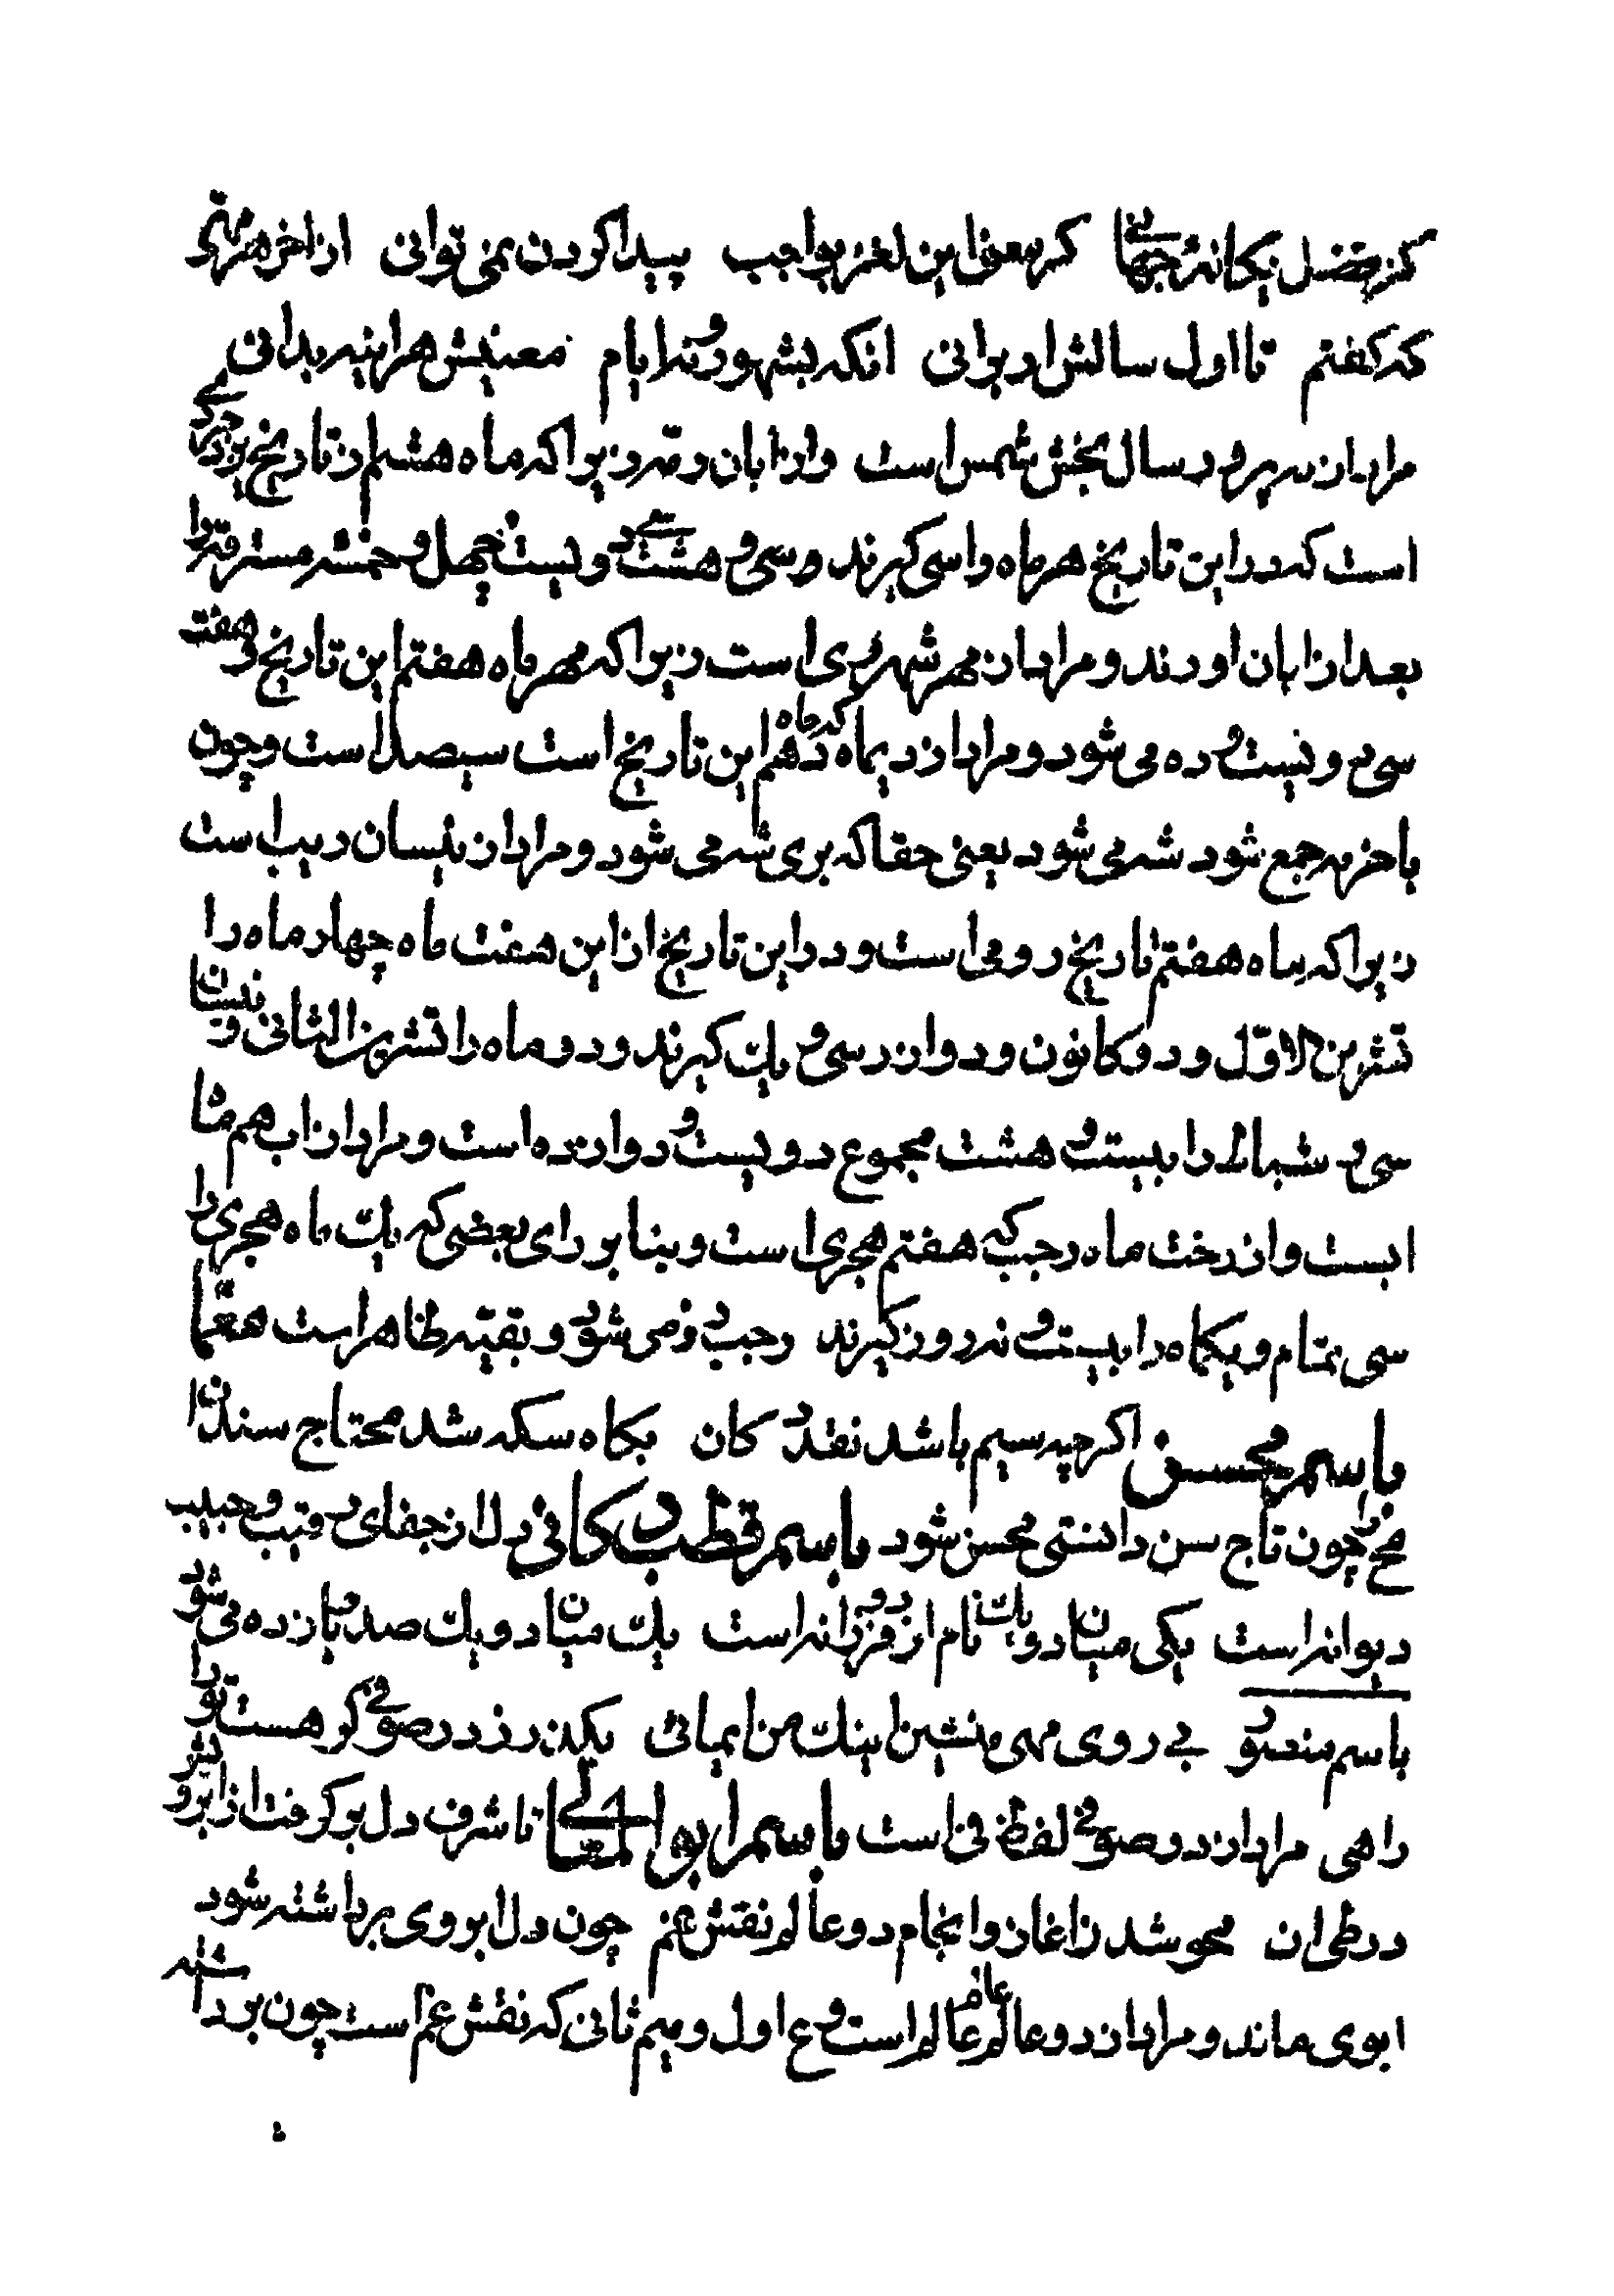 کز فضل یکانه جهانی که معنی این لغز بواجب پیدا کردن نمی توانی از اخر هر مهی
که کفتم تا اول سالش ار بوانی انکه بشهور و ایام معنیش هراینه بدانی
مراد از سه پر و سال بخش شمس است و از ابان و مهر زیرا که ماه هشتم از تاریخ یزدجردی
است که در این تاریخ هر ماه را سی کیرند و سی و هشت دویست و چهل و خمسه مسترقه را
بعد از ابان اورند و مراد از مهر شهری است زیرا که مهر ماه هفتم این تاریخ و هفت
سی دویست و ده می شود و مراد از دیماه که ماه دهم این تاریخ است سیصد است و چون
با خر مه جمع شود شه می شود یعنی حقا که بری شه می شود و مراد از نیسان ریب است
زیرا که ماه هفتم تاریخ رومی است و در این تاریخ از این هفت ماه چهار ماه را
تشرین الاول و دو کانون و دو اذر سی و یک کیرند و دو ماه را تشرین الثانی و نیسان
سی و شباط را بیست و هشت مجموع دویست و دوازده است و مراد از اب هم
ابست و از درخت ماه رجب که هفتم هجری است و بنا بر رای بعضی که یک ماه هجری را
سی تمام و یکماه را بیست و نه روز کیرند رجب رز می شود و بقیه ظاهر است معما
باسم محسن اکر چه سیم باشد نقد کان بکاه سکه شد محتاج سندان
مح چون تاج سن دانستی محسن شود باسم قطب کافی دل از جفای رقیب و حبیب
دیوانه است یکی میان دو یک نام از دو فرزانه است یک میان دو یک صد و یازده می شود
باسم منصور بی روی مهی منشین اینک من ایمائی یکذر ز در صوفی کر هست ترا
راهی مراد از در صوفی لفظ فی است باسم ابو المعالی تا شرف دل بر کرفت از ابرو
در طی ان محو شد زاغاز و انجام دو عالم نقش غم چون دل ابروی برداشته شود
ابوی ماند و مراد از دو عالم عالم است و ع اول و میم ثانی که نقش غم است چون برداشته